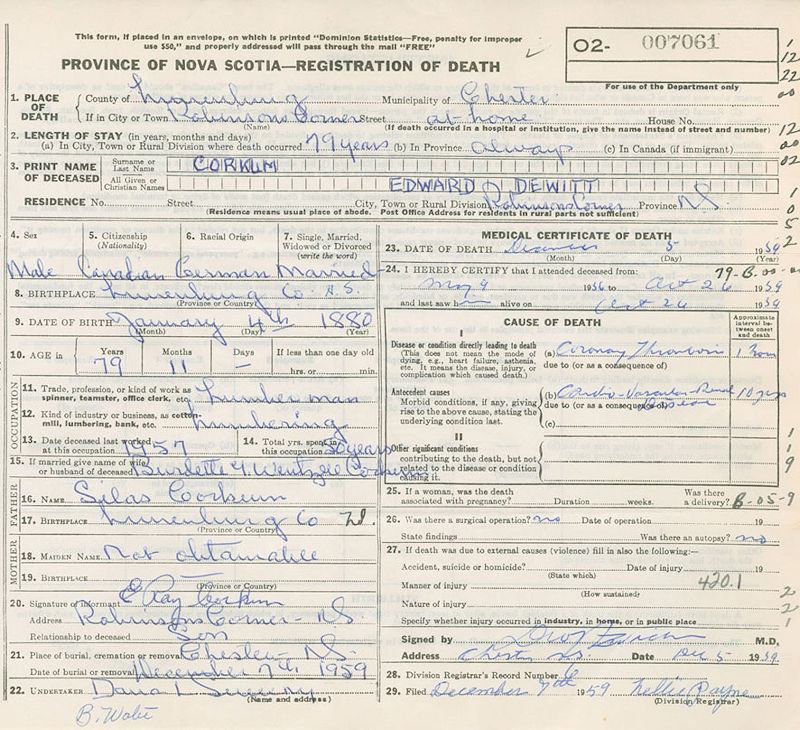 This form, if placed in an envelope, on which is printed "Dominion Statistics—Free, penalty for improper
use $50," and properly addressed will pass through the mail "FREE"
PROVINCE OF NOVA SCOTIA—REGISTRATION OF DEATH
O2- 007061
For use of the Department only
1. PLACE OF DEATH
County of Lunenburg Municipality of Chester
If in City or Town Robinsons Corner Street at home House No.
(Name) (If death occurred in a hospital or institution, give the name instead of street and number)
2. LENGTH OF STAY (in years, months and days)
(a) In City, Town or Rural Division where death occurred 79 years (b) In Province always (c) In Canada (if immigrant)
3. PRINT NAME OF DECEASED
Surname or Last Name CORKUM
All Given or Christian Names EDWARD DEWITT
RESIDENCE No. Street. City, Town or Rural Division Robinsons Corner Province NS
(Residence means usual place of abode. Post Office Address for residents in rural parts not sufficient)
4. Sex 5. Citizenship (Nationality) 6. Racial Origin 7. Single, Married, Widowed or Divorced (write the word)
Male Canadian German Married
8. BIRTHPLACE Lunenburg Co. N.S.
(Province or Country)
9. DATE OF BIRTH January 4th 1880
(Month) (Day) (Year)
10. AGE in Years Months Days If less than one day old
79 11 – hrs. or min.
OCCUPATION
11. Trade, profession, or kind of work as spinner, teamster, office clerk, etc. Lumberman
12. Kind of industry or business, as cotton-mill, lumbering, bank, etc. Lumbering
13. Date deceased last worked at this occupation 1957 14. Total yrs. spent in this occupation 50 years
15. If married give name of wife or husband of deceased Burdette Y Wentzell Corkum
FATHER
16. NAME Silas Corkum
17. BIRTHPLACE Lunenburg Co
(Province or Country)
MOTHER
18. MAIDEN NAME Not obtainable
19. BIRTHPLACE —
(Province or Country)
20. Signature of informant E Ray Corkum
Address Robinsons Corner - N.S.
Relationship to deceased Son
21. Place of burial, cremation or removal Chester N.S.
Date of burial or removal December 7th 1959
22. UNDERTAKER Dana L Sweeny
(Name and address)
MEDICAL CERTIFICATE OF DEATH
23. DATE OF DEATH December 5 1959
(Month) (Day) (Year)
24. I HEREBY CERTIFY that I attended deceased from:
May 9 1956 to Oct 26 1959
and last saw him alive on Oct 26 1959
CAUSE OF DEATH
Approximate interval between onset and death
I
Disease or condition directly leading to death
(This does not mean the mode of dying, e.g., heart failure, asthenia, etc. It means the disease, injury, or complication which caused death.)
(a) Coronary Thrombosis 1 hour
due to (or as a consequence of)
Antecedent causes
Morbid conditions, if any, giving rise to the above cause, stating the underlying condition last.
(b) Cardio-Vascular-Renal Disease 10 yrs
due to (or as a consequence of)
(c)
II
Other significant conditions
contributing to the death, but not related to the disease or condition causing it.
25. If a woman, was the death associated with pregnancy? Duration weeks. Was there a delivery? B-05-9
26. Was there a surgical operation? no Date of operation 19
State findings Was there an autopsy? no
27. If death was due to external causes (violence) fill in also the following:—
Accident, suicide or homicide? Date of injury 19
(State which)
Manner of injury 420.1
(How sustained)
Nature of injury
Specify whether injury occurred in industry, in home, or in public place
Signed by M.D,
Address Chester N.S. Date Dec 5 1959
28. Division Registrar's Record Number
29. Filed December 7th 1959 Nellie Payne
(Division Registrar)